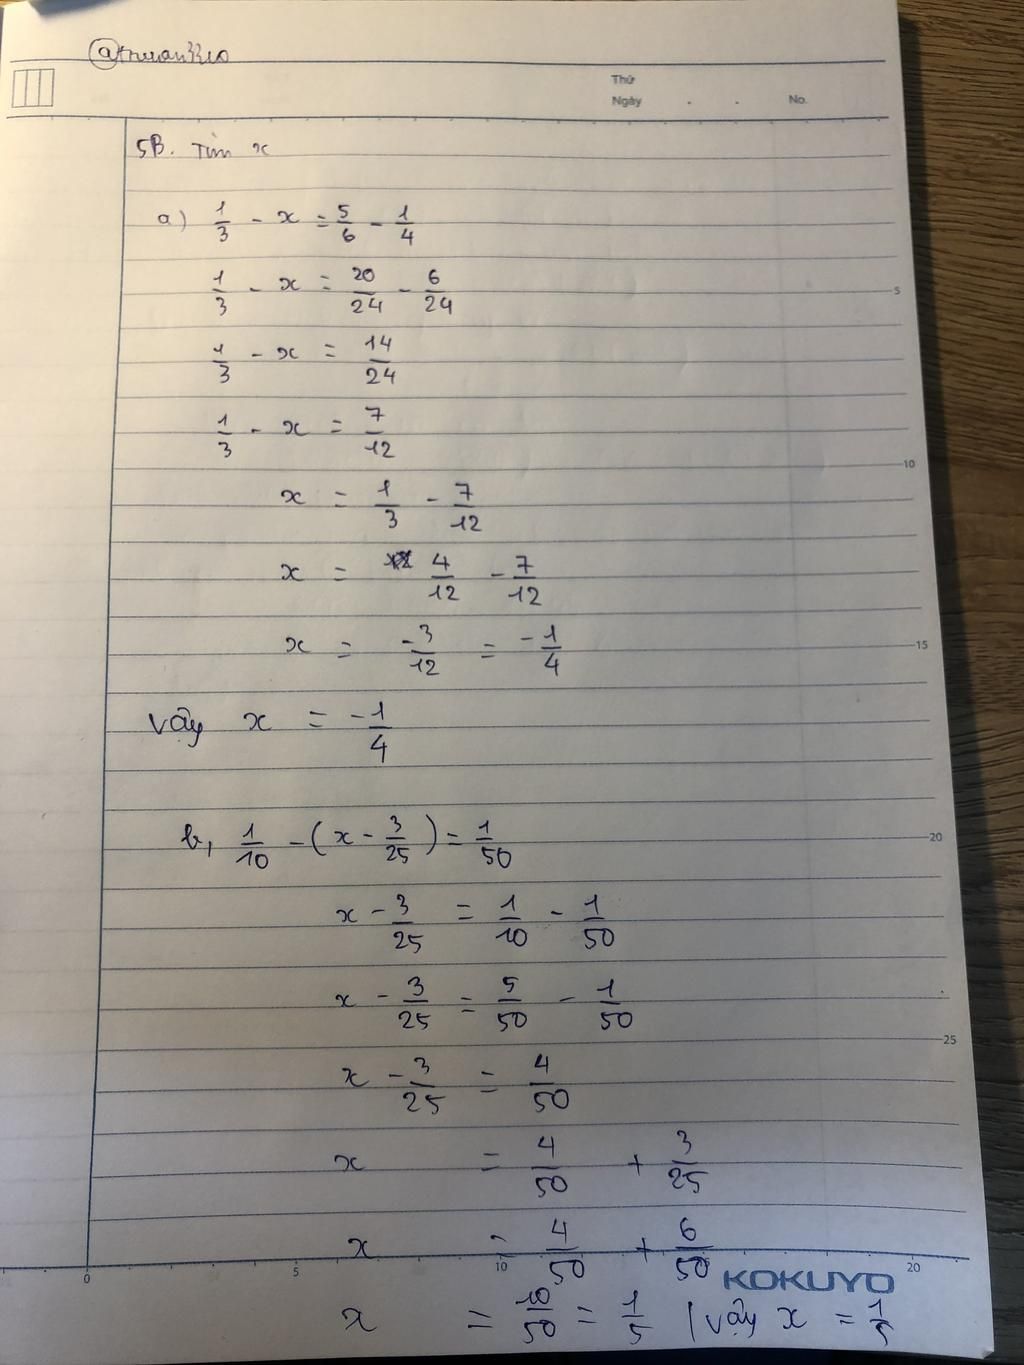 @thuan3310
Thứ
Ngày . . No.
5B. Tìm x
a) 1/3 - x = 5/6 - 1/4
1/3 - x = 20/24 - 6/24
5
1/3 - x = 14/24
1/3 - x = 7/12
10
x = 1/3 - 7/12
x = 4/12 - 7/12
x = -3/12 = -1/4
15
vậy x = -1/4
b, 1/10 - (x - 3/25) = 1/50
20
x - 3/25 = 1/10 - 1/50
x - 3/25 = 5/50 - 1/50
25
x - 3/25 = 4/50
x = 4/50 + 3/25
x = 4/50 + 6/50
0 5 10 20
KOKUYO
x = 10/50 = 1/5 | vậy x = 1/5